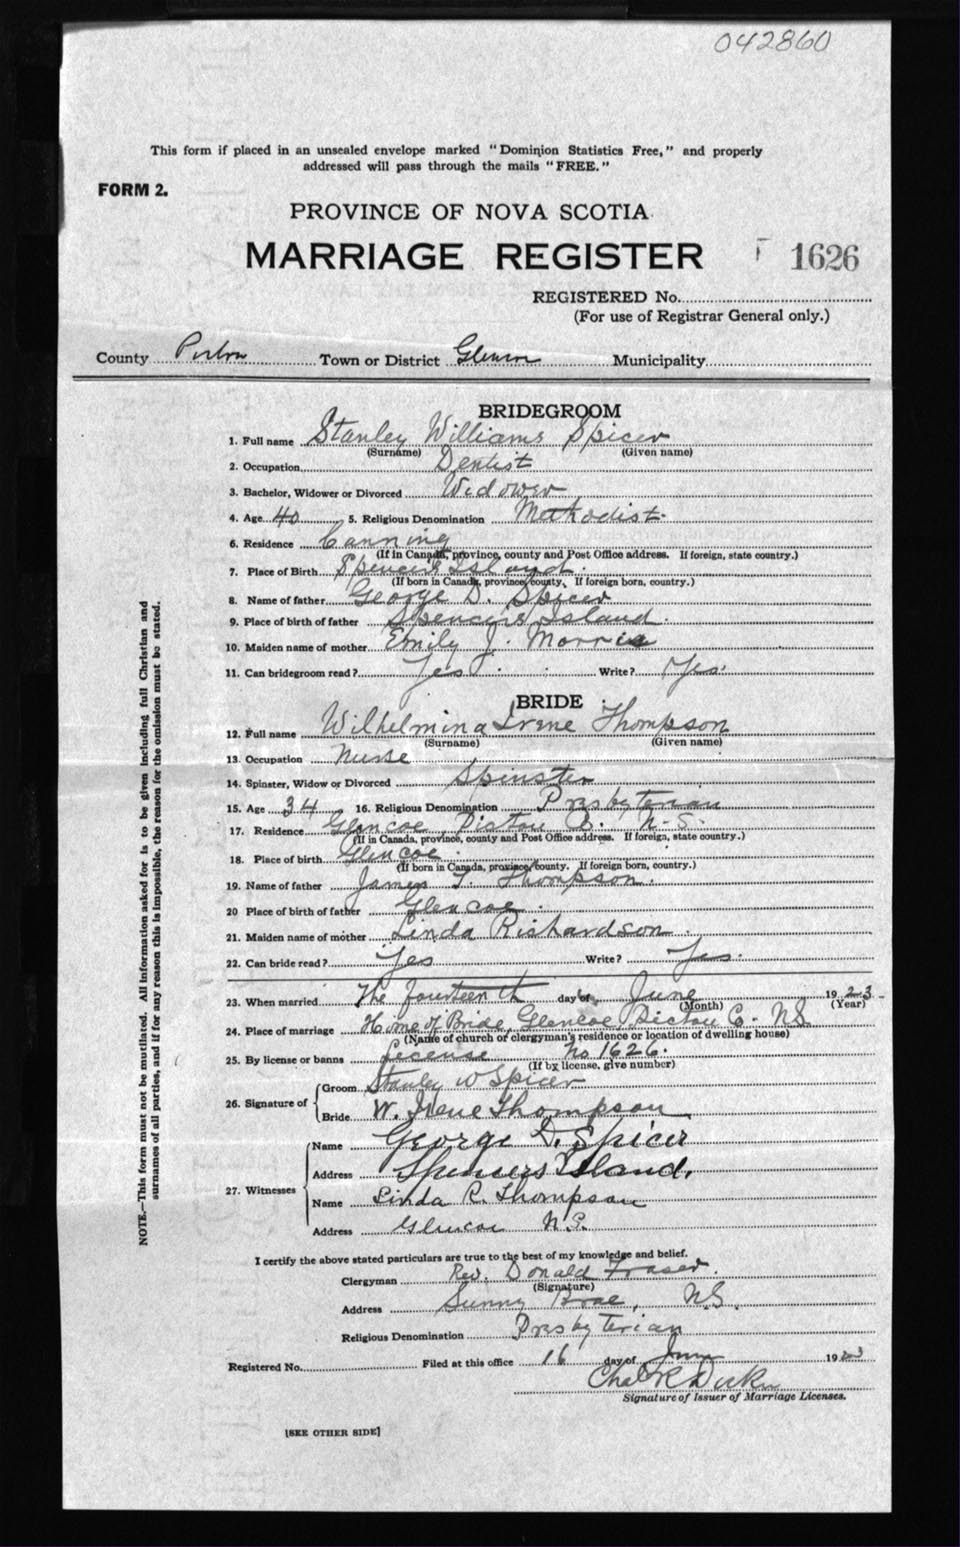 042860
This form if placed in an unsealed envelope marked "Dominion Statistics Free," and properly
addressed will pass through the mails "FREE."
FORM 2.
PROVINCE OF NOVA SCOTIA
MARRIAGE REGISTER 1626
REGISTERED No.
(For use of Registrar General only.)
County Pictou Town or District Glencoe Municipality
BRIDEGROOM
1. Full name Stanley Williams Spicer
(Surname) (Given name)
2. Occupation Dentist
3. Bachelor, Widower or Divorced Widower
4. Age 40 5. Religious Denomination Methodist
6. Residence Canning
(If in Canada, province, county and Post Office address. If foreign, state country.)
7. Place of Birth Spencers Island.
(If born in Canada, province/county. If foreign born, country.)
8. Name of father George D. Spicer
9. Place of birth of father Spencers Island.
10. Maiden name of mother Emily J. Morris
11. Can bridegroom read? Yes Write? Yes.
BRIDE
12. Full name Wilhelmina Irene Thompson
(Surname) (Given name)
13. Occupation Nurse
14. Spinster, Widow or Divorced Spinster
15. Age 34 16. Religious Denomination Presbyterian
17. Residence Glencoe, Pictou Co. N.S.
(If in Canada, province, county and Post Office address. If foreign, state country.)
18. Place of birth Glencoe.
(If born in Canada, province/county. If foreign born, country.)
19. Name of father James T. Thompson.
20 Place of birth of father Glencoe.
21. Maiden name of mother Linda Richardson.
22. Can bride read? Yes Write? Yes.
23. When married The fourteenth day of June 1923
(Month) (Year)
24. Place of marriage Home of Bride, Glencoe, Pictou Co. N.S.
(Name of church or clergyman's residence or location of dwelling house)
25. By license or banns License No 1626.
(If by license, give number)
26. Signature of
Groom Stanley W Spicer
Bride W. Irene Thompson
27. Witnesses
Name George D. Spicer
Address Spencers Island.
Name Linda R. Thompson
Address Glencoe N.S.
I certify the above stated particulars are true to the best of my knowledge and belief.
Clergyman Rev. Donald Fraser.
(Signature)
Address Sunny Brae, N.S.
Religious Denomination Presbyterian
Registered No. Filed at this office 16 day of June 1923
Signature of Issuer of Marriage Licenses.
[SEE OTHER SIDE]
NOTE.—This form must not be mutilated. All information asked for is to be given including full Christian and
surnames of all parties, and if for any reason this is impossible, the reason for the omission must be stated.